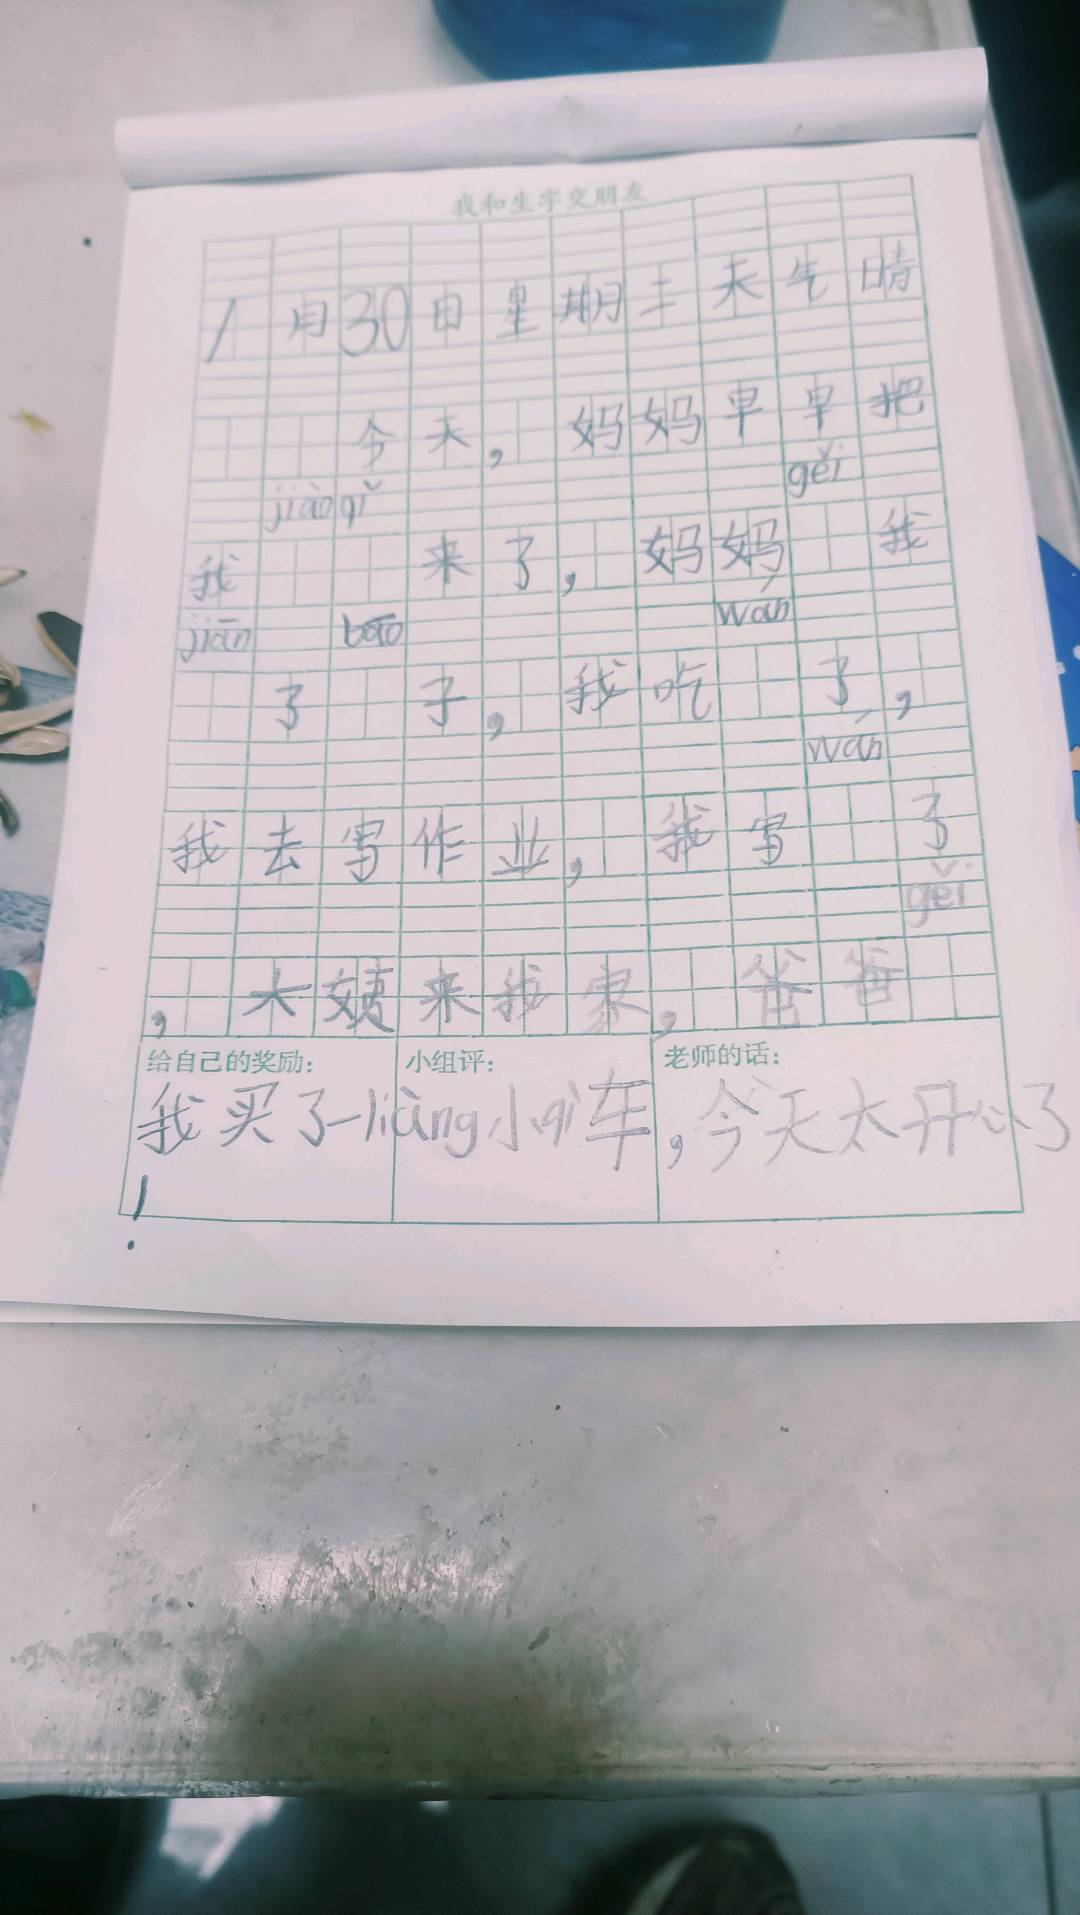 我和生字交朋友
1月30日星期三天气晴
今天，妈妈早早把
jiào qǐ gěi
我来了，妈妈我
jiān bāo wán
了子，我吃了，
wán
我去写作业，我写了
gěi
，大姨来我家，爸爸
给自己的奖励： 小组评： 老师的话：
我买了一liàng小qì车，今天太开心了
！